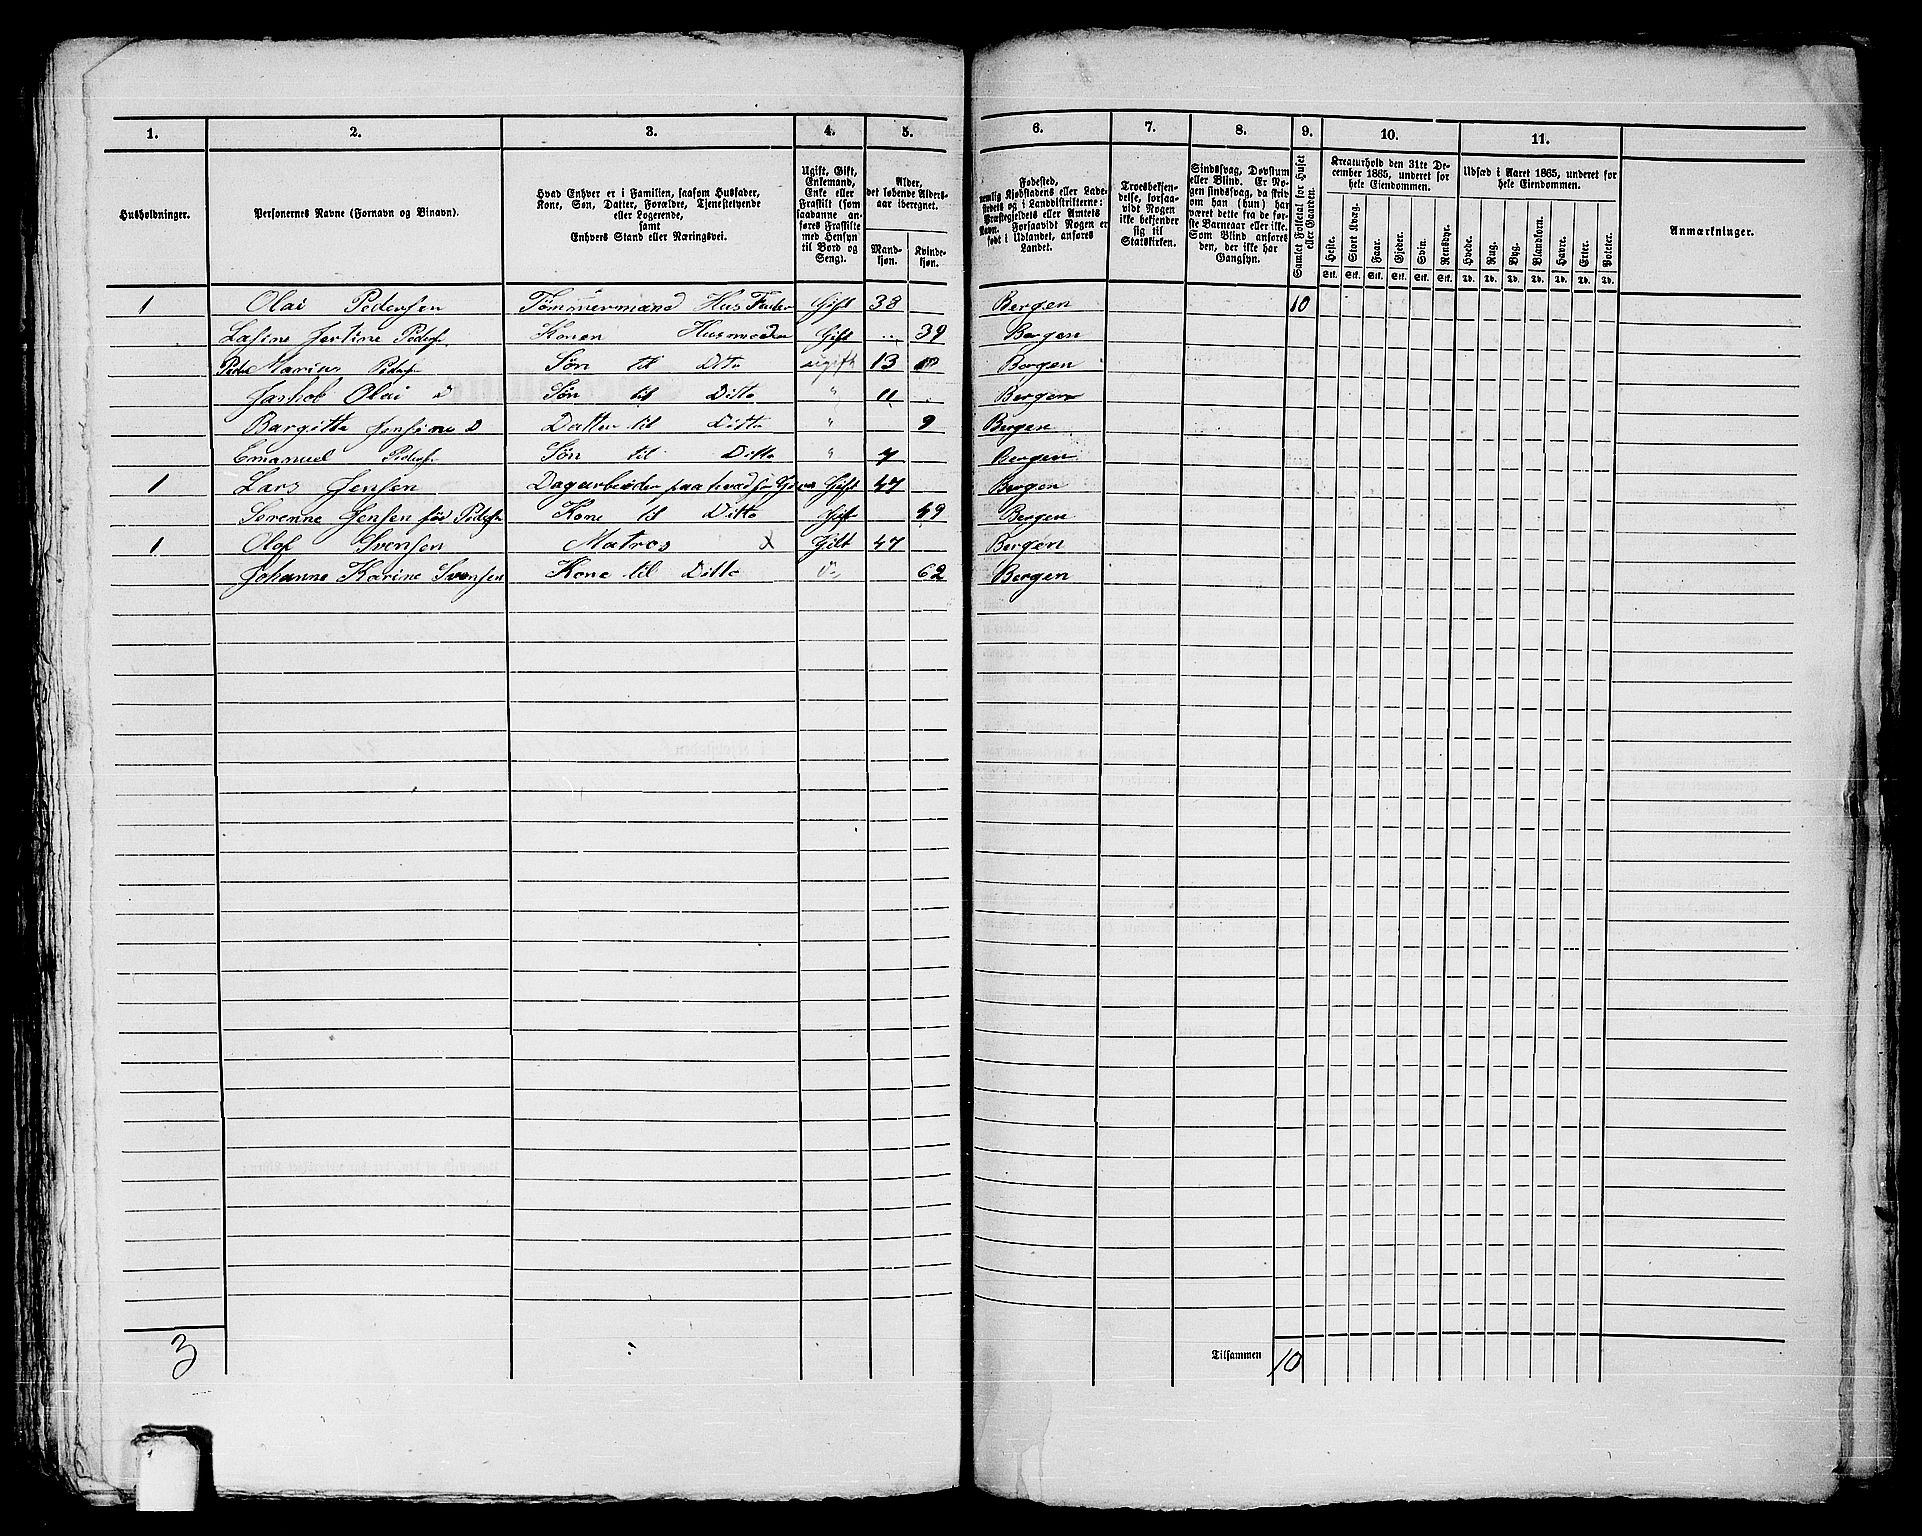 1. 2. 3. 4. 5. 6. 7. 8. 9. 10. 11.
Husholdninger.
Personernes Navne (Fornavn og Binavn).
Hvad Enhver er i Familien, saasom Husfader,
Kone, Søn, Datter, Forældre, Tjenestetyende
eller Logerende,
samt
Enhvers Stand eller Næringsvei.
Ugift, Gift,
Enkemand,
Enke eller
Fraskilt (som
saadanne an-
føres Fraskilte
med Hensyn
til Bord og
Seng).
Alder,
det løbende Alders-
aar iberegnet.
Mand-
kjøn.
Kvinde-
kjøn.
Fødested,
nemlig Kjøbstadens eller Lade-
stedets og i Landdistrikterne:
Præstegjeldets eller Amtets
Navn. Forsaavidt Nogen er
født i Udlandet, anføres
Landet.
Troesbekjen-
delse, forsaa-
vidt Nogen
ikke bekjender
sig til
Statskirken.
Sindssvag, Døvstum
eller Blind. Er No-
gen sindssvag, da skriv
om han (hun) har
været dette fra de før-
ste Barneaar eller ikke.
Som Blind anføres
den, der ikke har
Gangsyn.
Samlet Folketal for Huset
eller Gaarden.
Kreaturhold den 31te De-
cember 1865, underet for
hele Eiendommen.
Heste. Stort Kvæg. Faar. Gjeder. Svin. Rensdyr.
Stk. Stk. Stk. Stk. Stk. Stk.
Udsæd i Aaret 1865, underet for
hele Eiendommen.
Hvede. Rug. Byg. Blandkorn. Havre. Erter. Poteter.
Td. Td. Td. Td. Td. Td. Td.
Anmærkninger.
1 Olai Pedersen Tømmermand Hus Fader Gift 38 Bergen 10
Peders Konen Husmoder Gift 39 Bergen
Peder Marius Peders Søn til Dito ugift 13 Bergen
Jackob Olai D Søn til Ditto " 11 Bergen
Bargitte Jensine D Datter til Ditto " 9 Bergen
Emanuel Peders Søn til Ditto " 7 Bergen
1 Lars Jensen Dagarbeider paa Gift 47 Bergen
Serenne Jensen fød Peders Kone til Ditto Gift 49 Bergen
1 Olof Svensen Matros x Gift 47 Bergen
Johanne Karine Svensen Kone til Ditto D 62 Bergen
3
Tilsammen 10